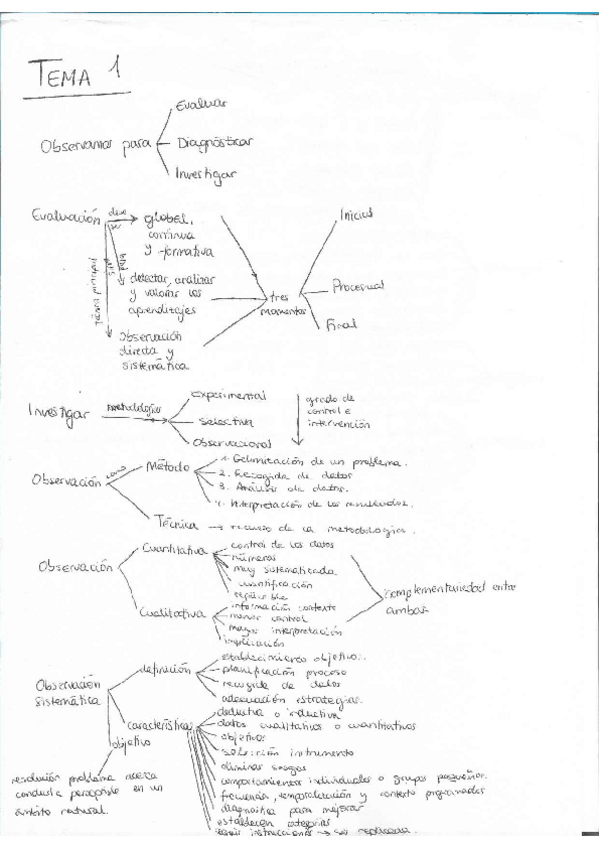 TEMA 1
Observamos para
Evaluar
Diagnósticar
Investigar
Evaluación
debe ser
global,
continua
y formativa
para
detectar, analizar
y valorar los
aprendizajes
técnica principal
Observación
directa y
sistemática
tres
momentos
Inicial
Procesual
Final
Investigar
metodologías
Experimental
Selectiva
Observacional
grado de
control e
intervención
Observación
como
Método
1. Delimitación de un problema.
2. Recogida de datos
3. Análisis de datos.
4. Interpretación de los resultados.
Técnica → recurso de la metodología.
Observación
Cuantitativa
control de los datos
números
muy sistematizada
cuantificación
replicable
Cualitativa
información contexto
menor control
mayor interpretación
implicación
complementariedad entre
ambas
Observación
sistemática
definición
establecimiento objetivos.
planificación proceso
recogida de datos
adecuación estrategias.
características
deductiva o inductiva
datos cualitativos o cuantitativos
objetivos
selección instrumento
eliminar sesgos
comportamientos individuales o grupos pequeños.
frecuencia, temporalización y contexto programados
diagnostica para mejorar
establecen categorías
seguir instrucciones → ser replicada.
objetivo
resolución problema acerca
conducta perceptible en un
ámbito natural.